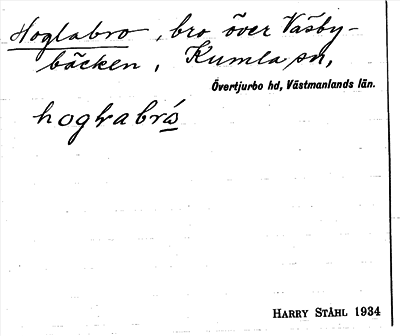 Hoglabro, bro över Väsby-
bäcken, Kumla sn,
Övertjurbo hd, Västmanlands län.
Harry Ståhl 1934